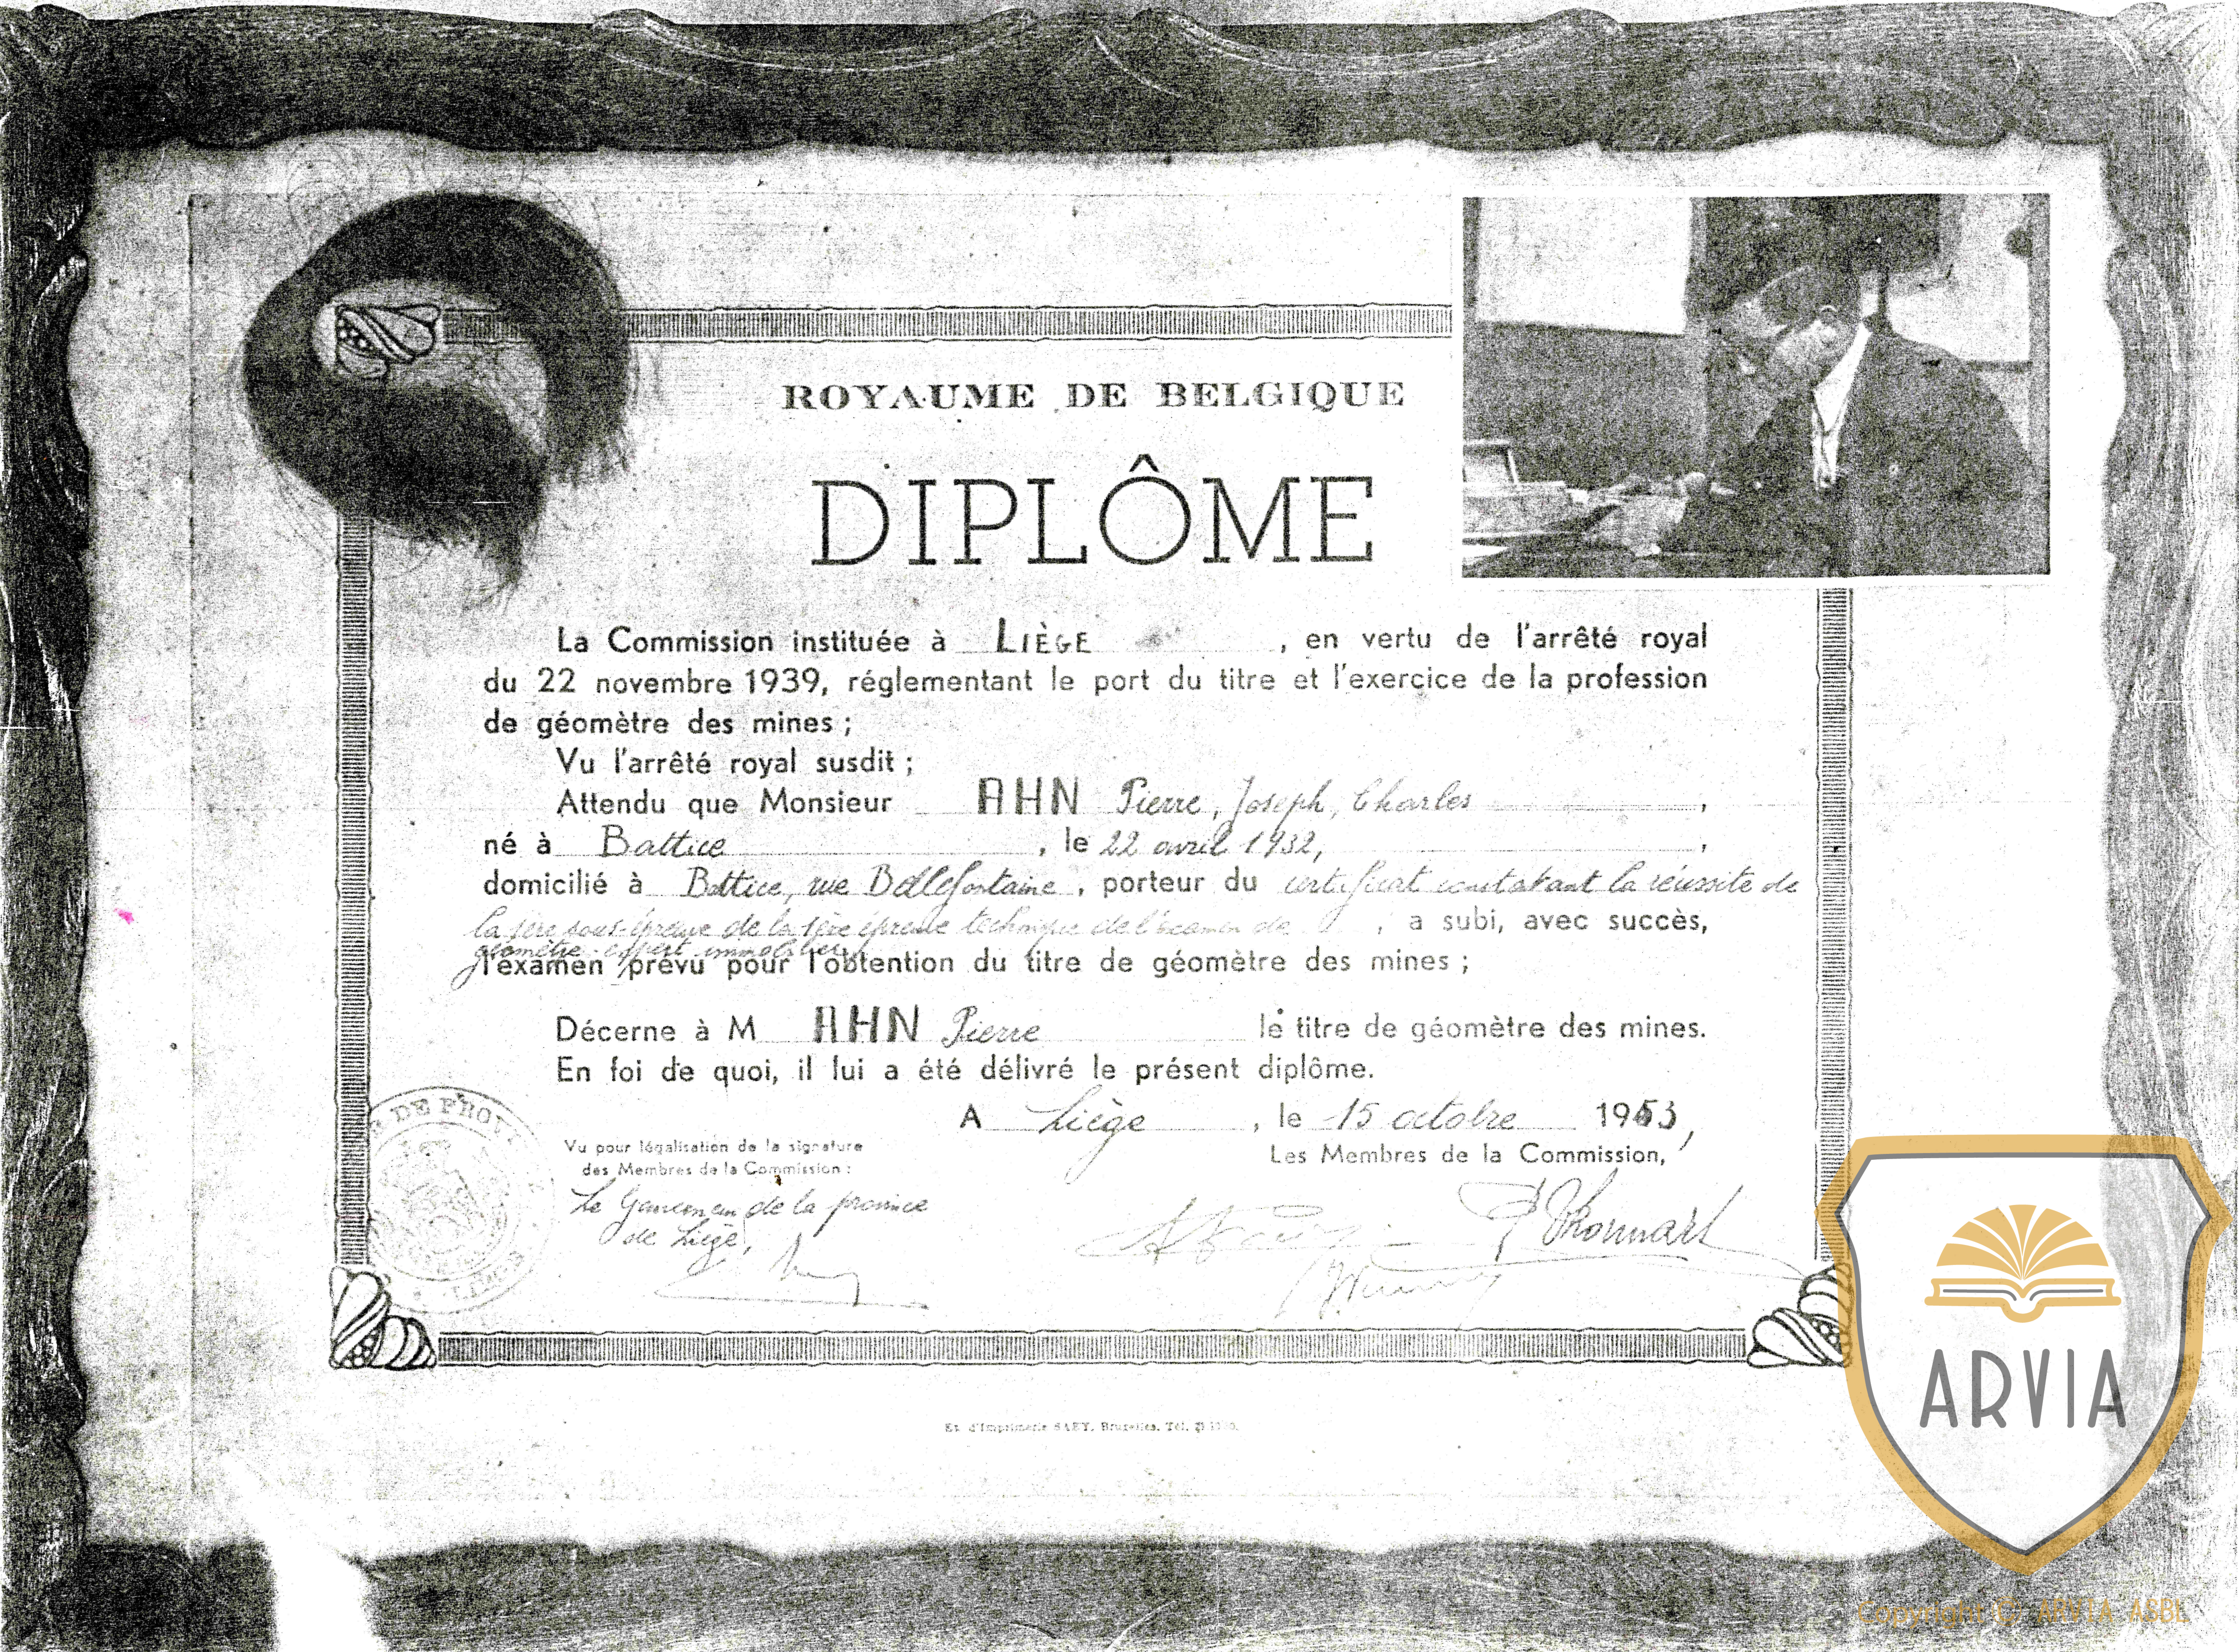 ROYAUME DE BELGIQUE
DIPLÔME
La Commission instituée à LIÈGE, en vertu de l'arrêté royal
du 22 novembre 1939, réglementant le port du titre et l'exercice de la profession
de géomètre des mines ;
Vu l'arrêté royal susdit ;
Attendu que Monsieur AHN Pierre, Joseph, Charles,
né à Battice, le 22 avril 1932,
domicilié à Battice, rue Bellefontaine, porteur du certificat constatant la réussite de
la 1ère sous-épreuve de la 1ère épreuve technique de l'examen de, a subi, avec succès,
géomètre-expert immobilier,
l'examen prévu pour l'obtention du titre de géomètre des mines ;
Décerne à M AHN Pierre le titre de géomètre des mines.
En foi de quoi, il lui a été délivré le présent diplôme.
A Liège, le 15 octobre 1953,
Vu pour légalisation de la signature
des Membres de la Commission :
Les Membres de la Commission,
Le Gouverneur de la province
de Liège,
DE PROV
Et. d'Imprimerie SAEY, Bruxelles. Tél.
ARVIA
Copyright © ARVIA ASBL